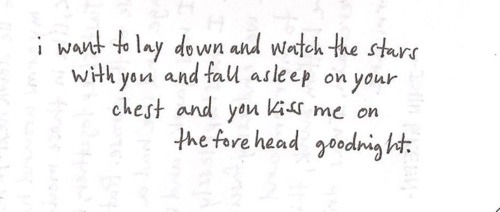 i want to lay down and watch the stars
with you and fall asleep on your
chest and you kiss me on
the forehead goodnight.